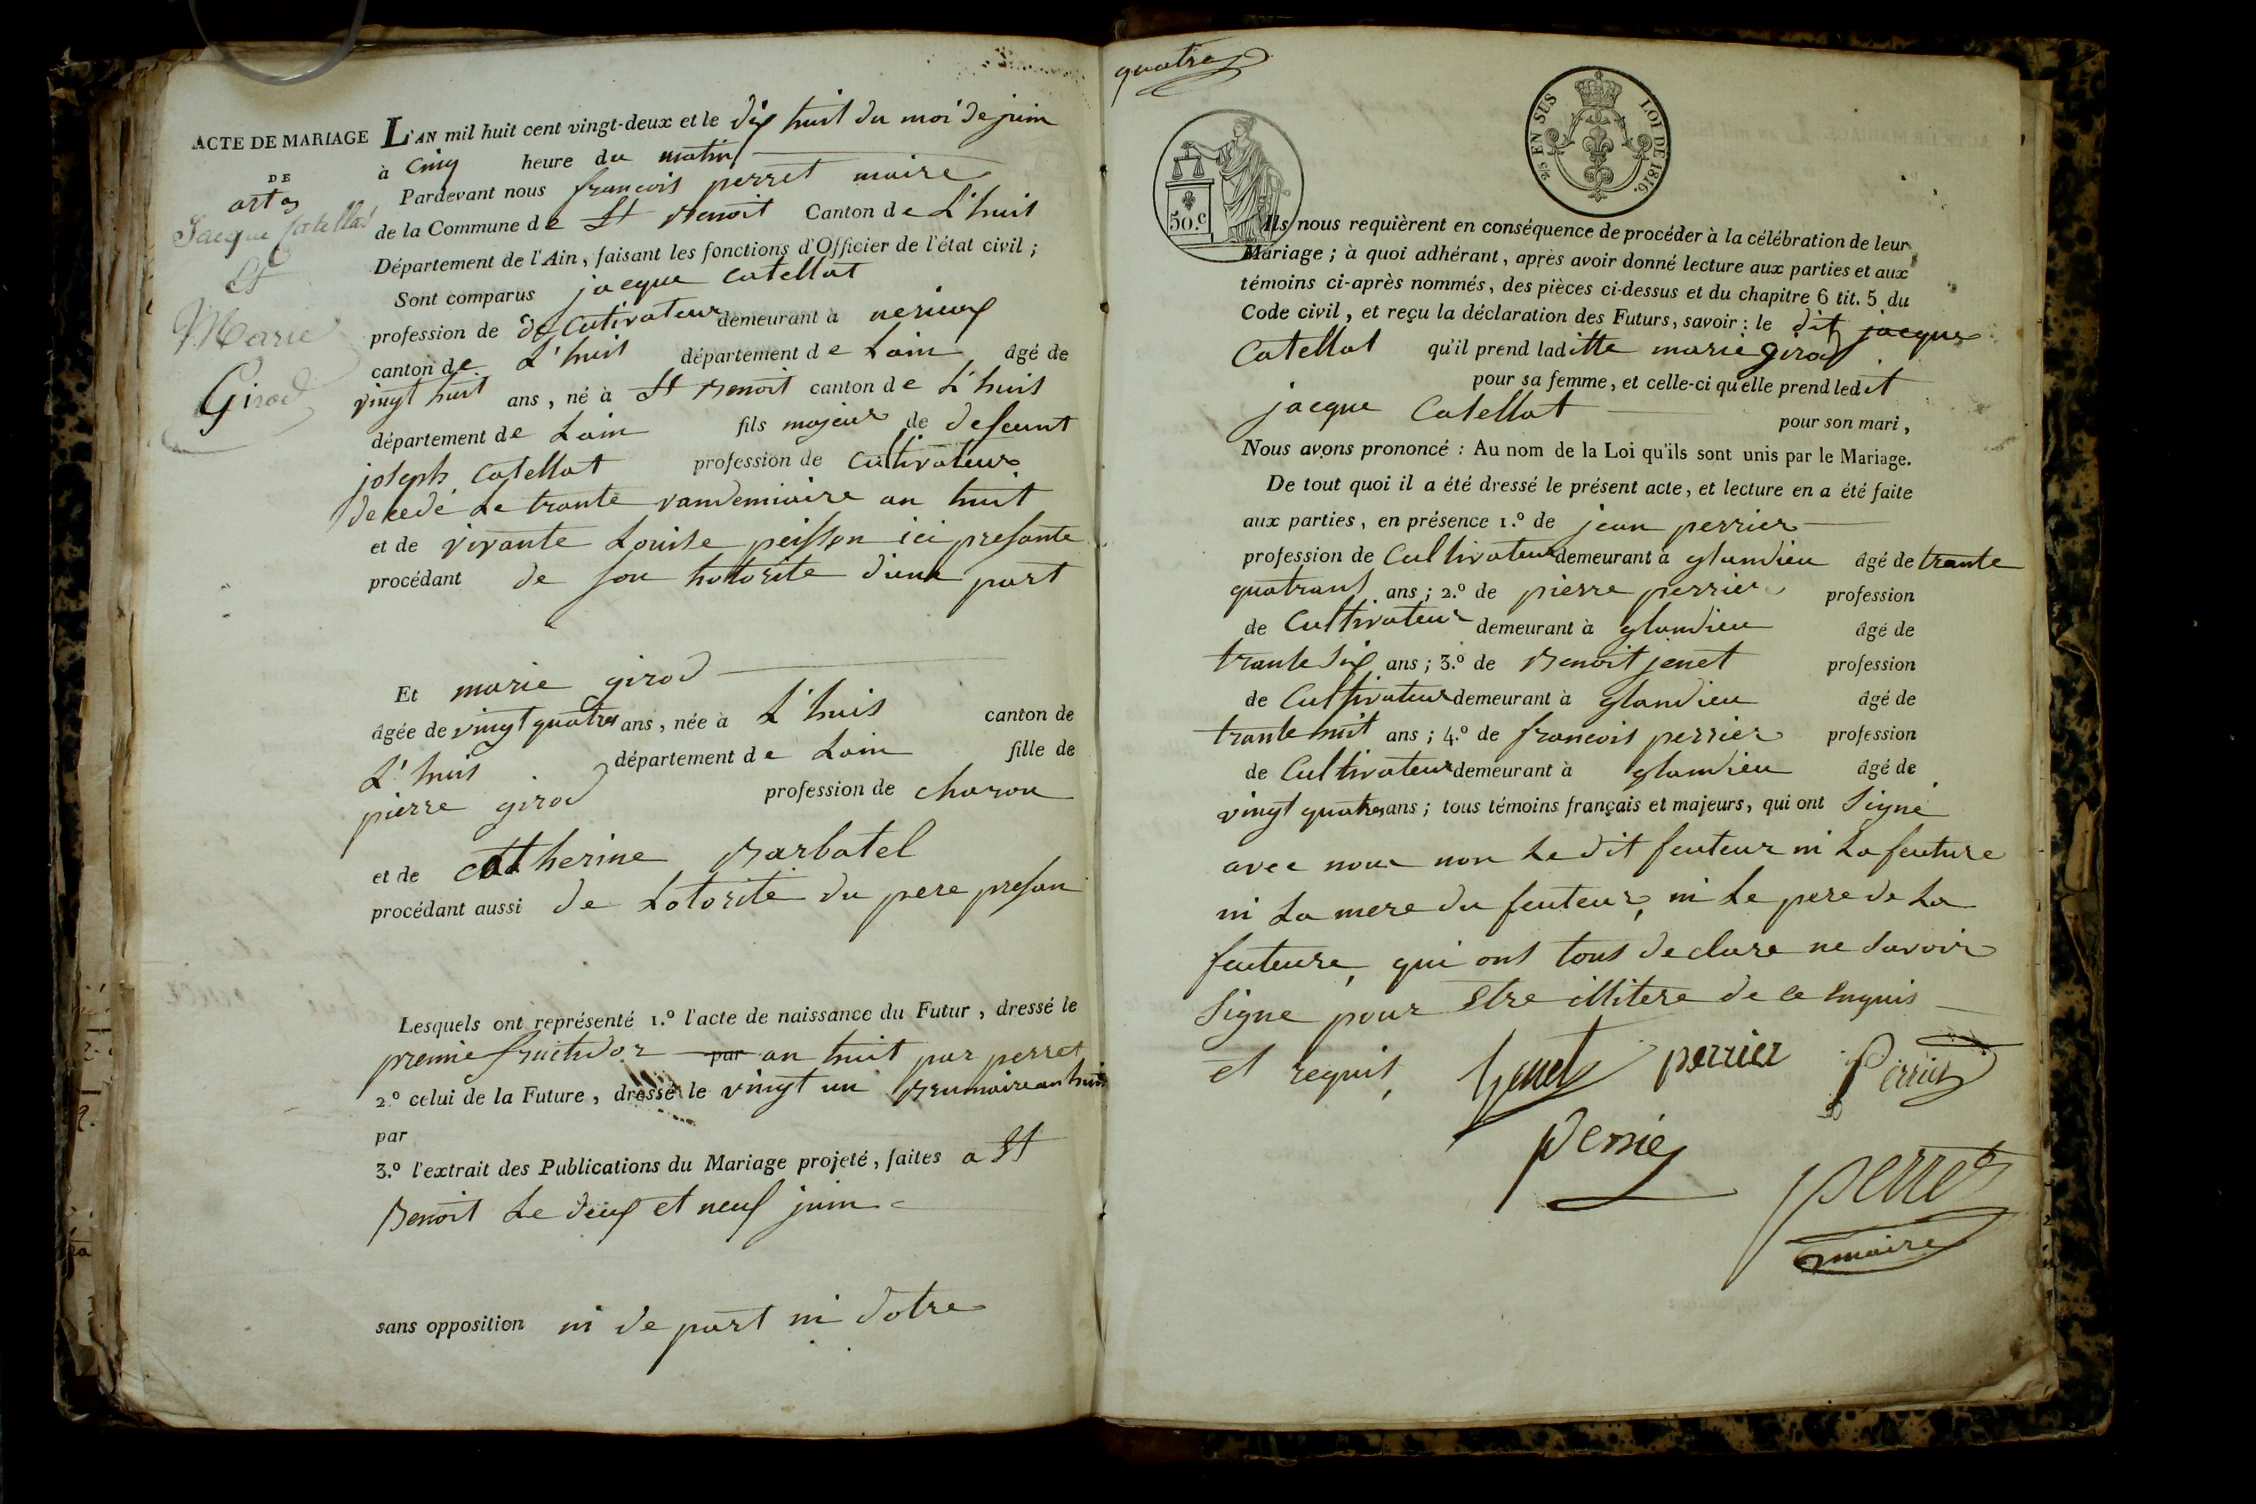 ACTE DE MARIAGE
DE
Jacque Catellat
Et
Marie
Girod
L'AN mil huit cent vingt-deux et le dix huit du moi de juin
à cinq heure du matin
Pardevant nous francois perret maire
de la Commune de St Benoit Canton de L'huis
Département de l'Ain, faisant les fonctions d'Officier de l'état civil ;
Sont comparus jacque Catellat
profession de de Cutivateur demeurant à nerieux
canton de L'huis département de Lain âgé de
vingt huit ans, né à St Benoit canton de L'huis
département de Lain fils majeur de defeunt
joseph Catellat profession de Cultivateur
decedé Le trante vandemiaire an huit
et de vivante Louise peisson ici presante
procédant de son hotorite dune part
Et marie girod
âgée de vingt quatres ans, née à L'huis canton de
L'huis département de Lain fille de
pierre girod profession de charon
et de catherine Barbatel
procédant aussi de Lotorite du pere presan
Lesquels ont représenté 1.º l'acte de naissance du Futur, dressé le
premie fructidor par an huit par perret
2.º celui de la Future, dressé le vingt un Brumaire an huit
par
3.º l'extrait des Publications du Mariage projeté, faites a St
Benoit Le deux et neuf juin
sans opposition ni de part ni dotre
quatre
2/5 EN SUS LOI DE 1816.
50.c
Ils nous requièrent en conséquence de procéder à la célébration de leur
Mariage ; à quoi adhérant, après avoir donné lecture aux parties et aux
témoins ci-après nommés, des pièces ci-dessus et du chapitre 6 tit. 5 du
Code civil, et reçu la déclaration des Futurs, savoir : le dit jacque
Catellat qu'il prend laditte marie girod
pour sa femme, et celle-ci qu'elle prend ledit
jacque Catellat pour son mari,
Nous avons prononcé : Au nom de la Loi qu'ils sont unis par le Mariage.
De tout quoi il a été dressé le présent acte, et lecture en a été faite
aux parties, en présence 1.º de jean perrier
profession de Cultivateur demeurant à glandieu âgé de trante
quatrans ans ; 2.º de pierre perrier profession
de Cultivateur demeurant à glandieu âgé de
trante six ans ; 3.º de Benoit jenet profession
de Cultivateur demeurant à glandieu âgé de
trante huit ans ; 4.º de francois perrier profession
de Cultivateur demeurant à glandieu âgé de
vingt quatres ans ; tous témoins français et majeurs, qui ont signé
avec nous non Le dit feuteur ni La feuture
ni La mere du feuteur, ni Le pere de La
feuteure, qui ont tous declare ne savoir
signe pour Etre illitere de ce enquis
et requis, perrier Perrier
perrie
perret
maire